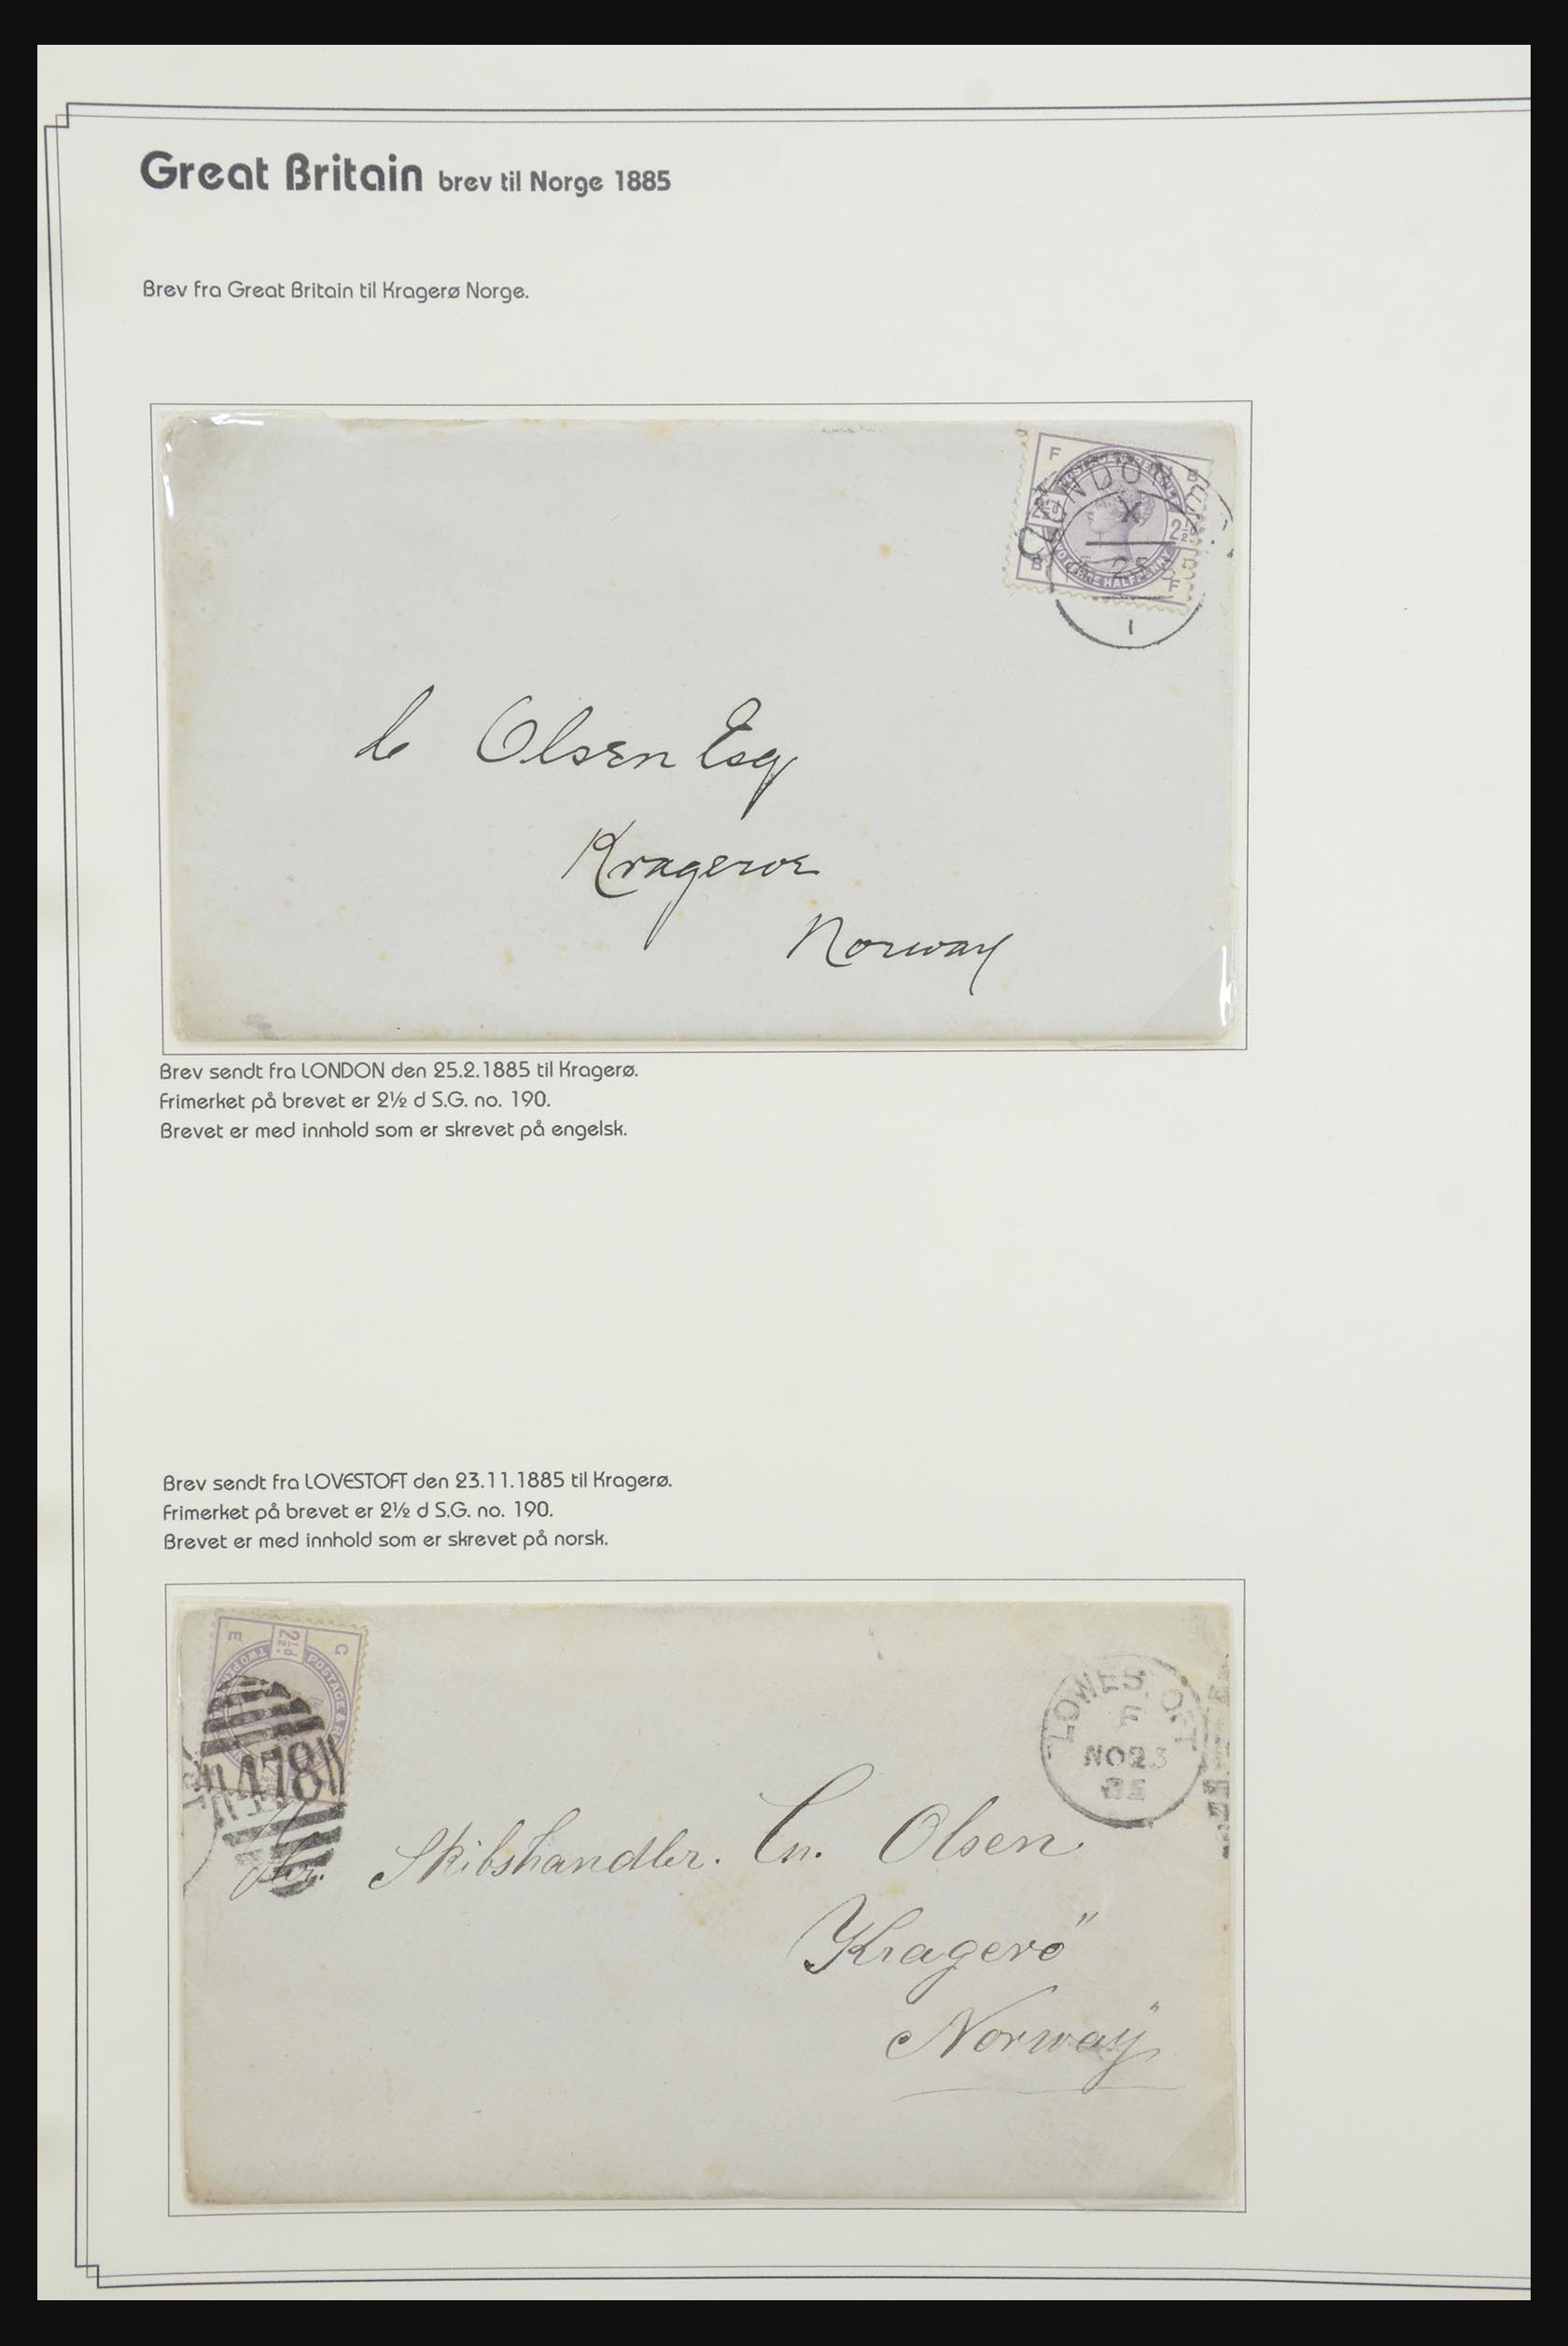 Great Britain brev til Norge 1885
Brev fra Great Britain til Kragerø Norge.
F B
LONDON
X
2½
25
HALFPENNY
B F
1
Olsen Esq
Krageroe
Norway
Brev sendt fra LONDON den 25.2.1885 til Kragerø.
Frimerket på brevet er 2½ d S.G. no. 190.
Brevet er med innhold som er skrevet på engelsk.
Brev sendt fra LOVESTOFT den 23.11.1885 til Kragerø.
Frimerket på brevet er 2½ d S.G. no. 190.
Brevet er med innhold som er skrevet på norsk.
E 2½ C
POSTAGE &
478
LOWESTOFT
F
NO 23
85
Skibshandler. Cn. Olsen
Kragerö
Norway